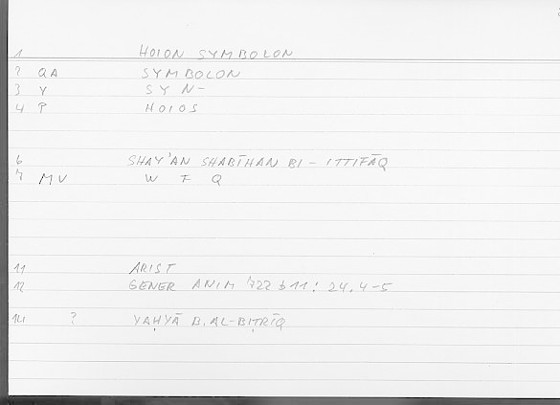 1 HOION SYMBOLON
2 QA SYMBOLON
3 Y SYN-
4 P HOIOS
6 SHAY'AN SHABĪHAN BI-ITTIFĀQ
7 MV W F Q
11 ARIST
12 GENER ANIM 722 b 11: 24.4-5
14 ? YAḤYĀ B. AL-BIṬRĪQ